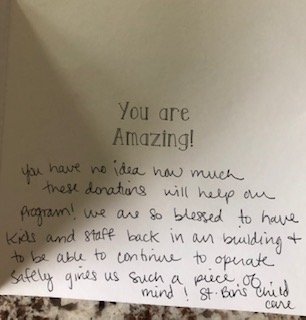 You are
Amazing!
you have no idea how much
these donations will help our
program! we are so blessed to have
kids and staff back in our building +
to be able to continue to operate
safely gives us such a piece of
mind! St. Bons child
care